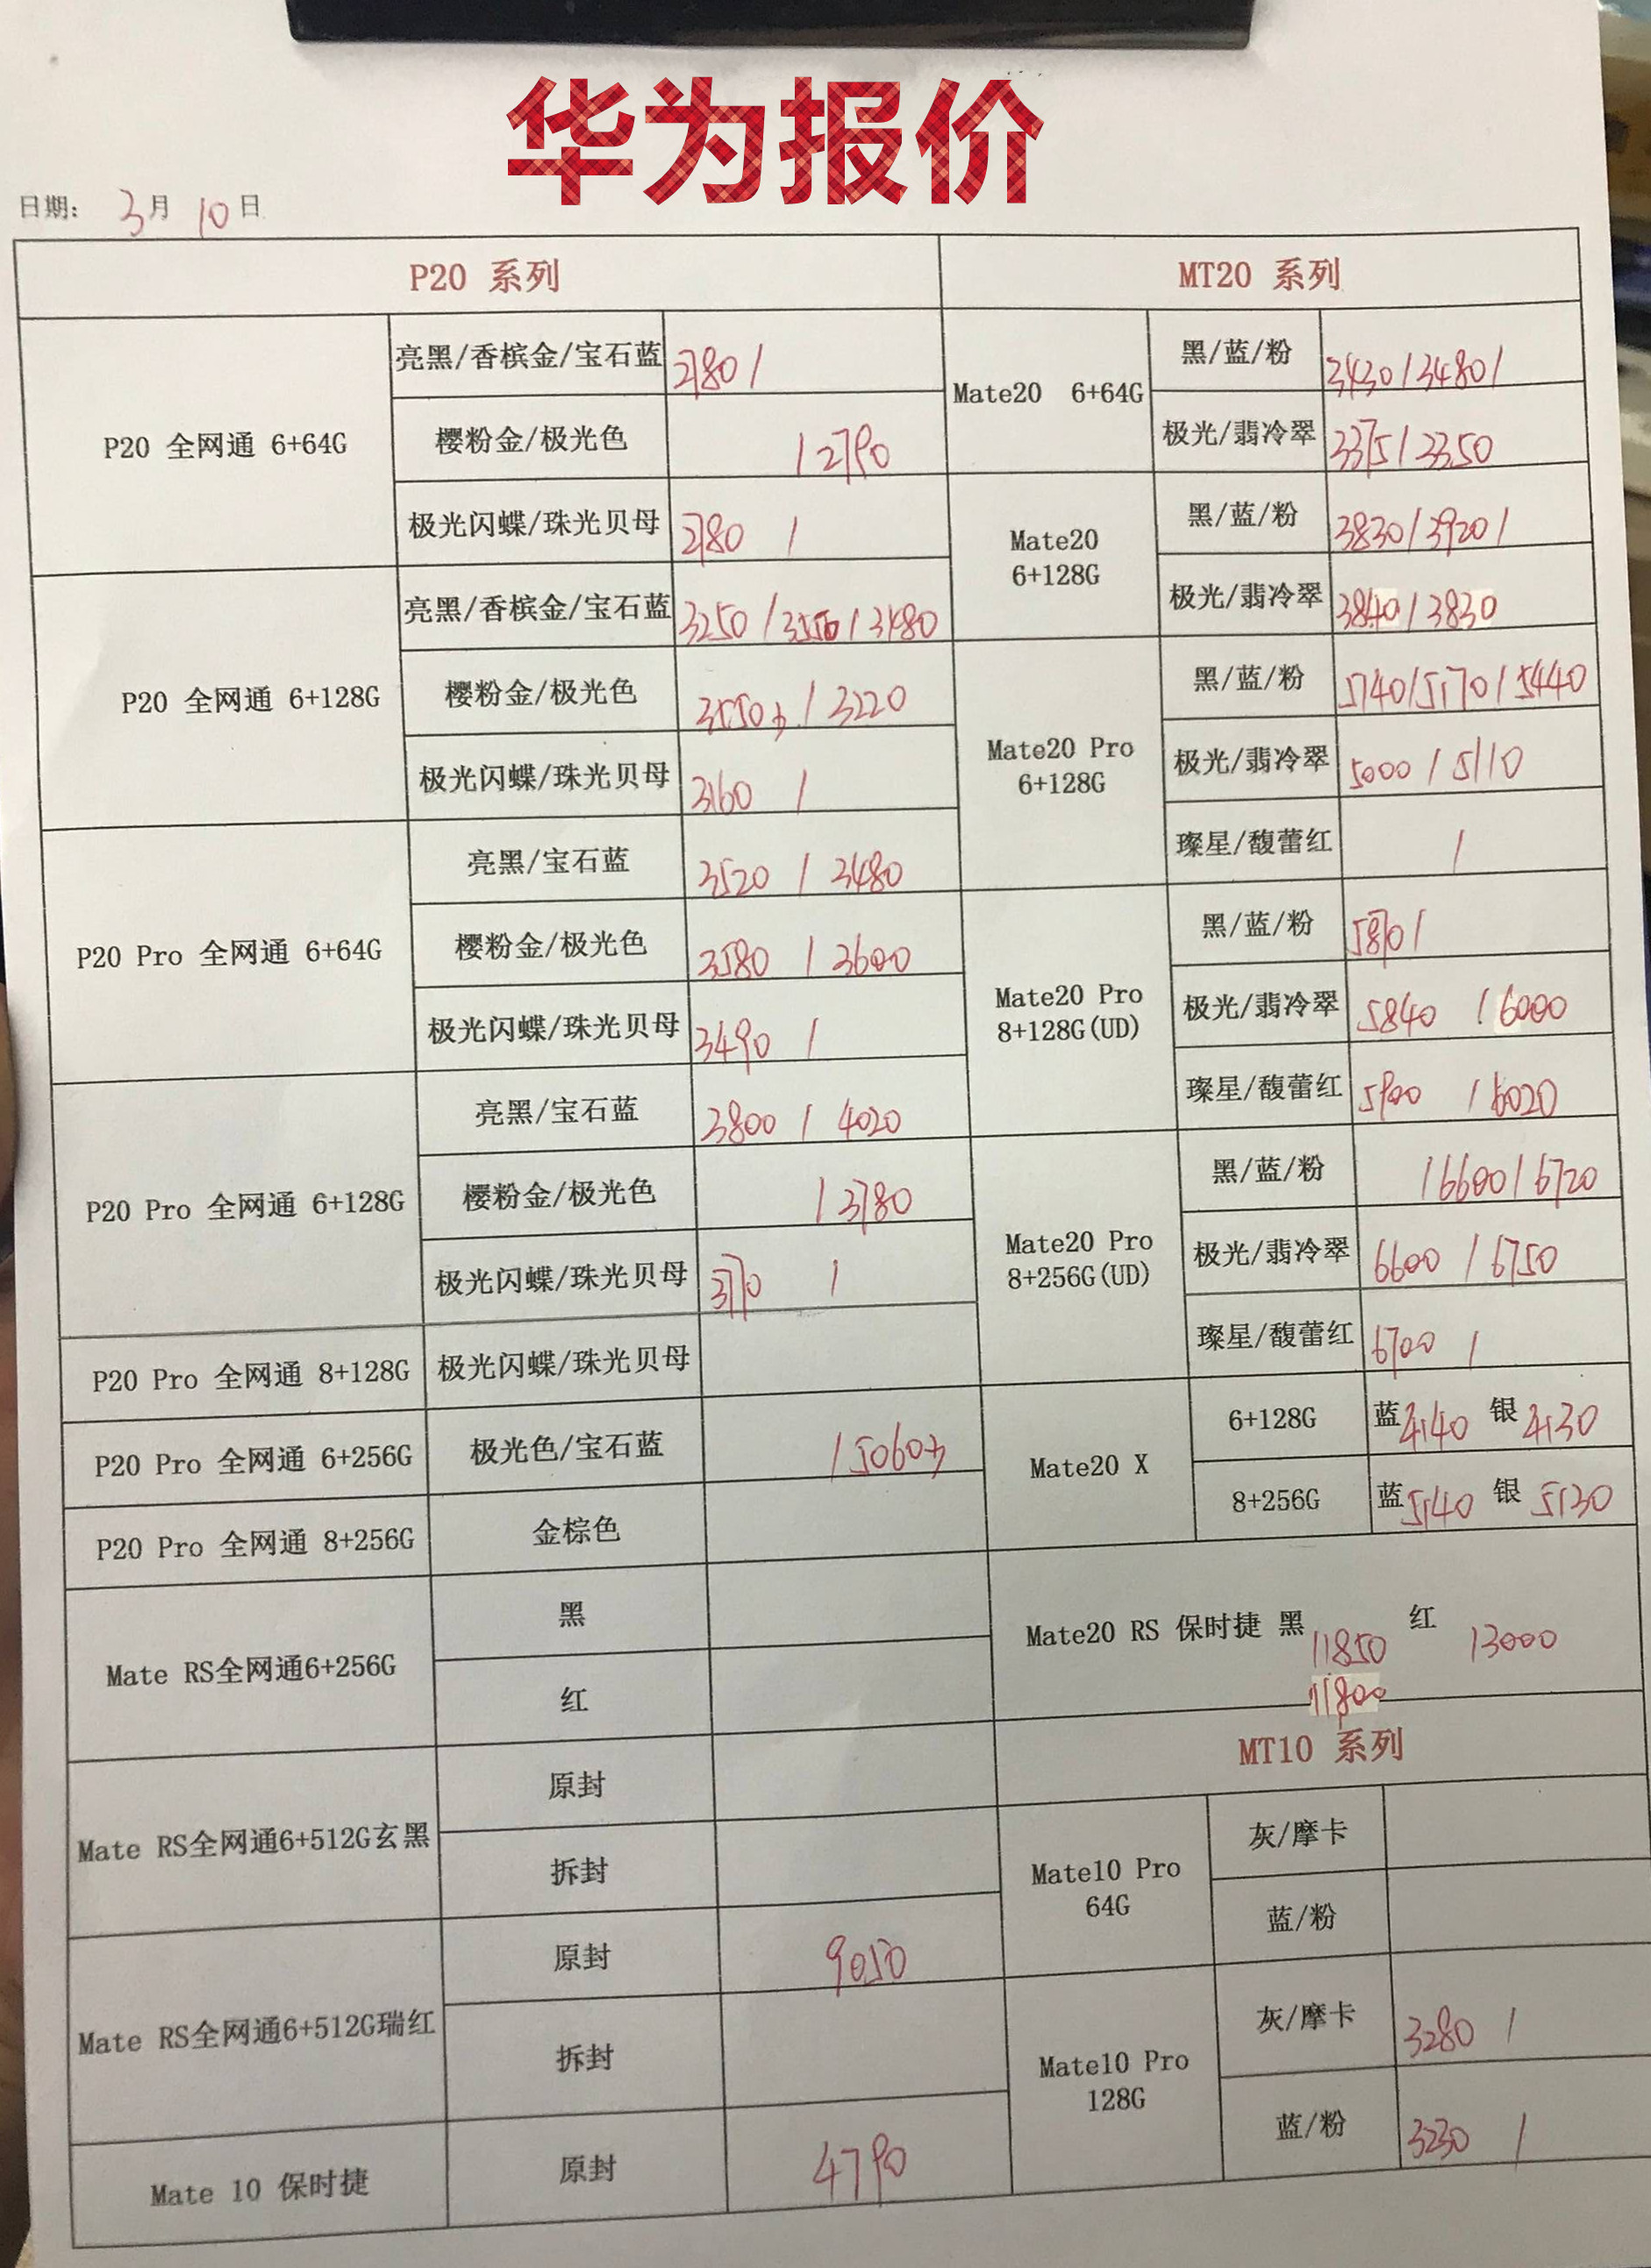 华为报价
日期： 3月 10日
P20 系列
P20 全网通 6+64G
亮黑/香槟金/宝石蓝 2780 /
樱粉金/极光色 / 2790
极光闪蝶/珠光贝母 2780 /
P20 全网通 6+128G
亮黑/香槟金/宝石蓝 3250 / / 3480
樱粉金/极光色 / 3220
极光闪蝶/珠光贝母 3160 /
P20 Pro 全网通 6+64G
亮黑/宝石蓝 3520 / 3480
樱粉金/极光色 3580 / 3600
极光闪蝶/珠光贝母 3490 /
P20 Pro 全网通 6+128G
亮黑/宝石蓝 3800 / 4020
樱粉金/极光色 / 3780
极光闪蝶/珠光贝母 3770 /
P20 Pro 全网通 8+128G 极光闪蝶/珠光贝母
P20 Pro 全网通 6+256G 极光色/宝石蓝 / 5060
P20 Pro 全网通 8+256G 金棕色
Mate RS全网通6+256G
黑
红
Mate RS全网通6+512G玄黑
原封
拆封
Mate RS全网通6+512G瑞红
原封 9050
拆封
Mate 10 保时捷 原封 4790
MT20 系列
Mate20 6+64G
黑/蓝/粉 3430 / 3480 /
极光/翡冷翠 3375 / 3350
Mate20
6+128G
黑/蓝/粉 3830 / 3920 /
极光/翡冷翠 3840 / 3830
Mate20 Pro
6+128G
黑/蓝/粉 5740 / 5170 / 5440
极光/翡冷翠 5000 / 5110
璨星/馥蕾红 /
Mate20 Pro
8+128G(UD)
黑/蓝/粉 5870 /
极光/翡冷翠 5840 / 6000
璨星/馥蕾红 5900 / 6020
Mate20 Pro
8+256G(UD)
黑/蓝/粉 / 6600 / 6720
极光/翡冷翠 6600 / 6750
璨星/馥蕾红 6700 /
Mate20 X
6+128G 蓝4140 银4130
8+256G 蓝5140 银5130
Mate20 RS 保时捷 黑 11850 红 13000
11800
MT10 系列
Mate10 Pro
64G
灰/摩卡
蓝/粉
Mate10 Pro
128G
灰/摩卡 3280 /
蓝/粉 3230 /